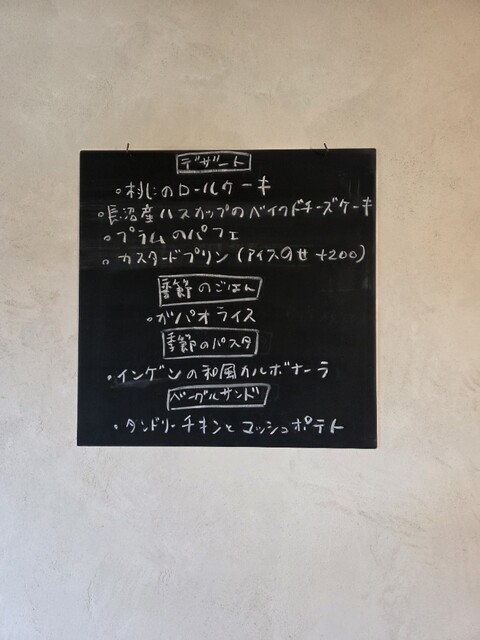 デザート
。桃のロールケーキ
。長沼産ハスカップのベイクドチーズケーキ
。プラムのパフェ
。カスタードプリン(アイスのせ+200)
季節のごはん
。ガパオライス
季節のパスタ
。インゲンの和風カルボナーラ
ベーグルサンド
。タンドリーチキンとマッシュポテト